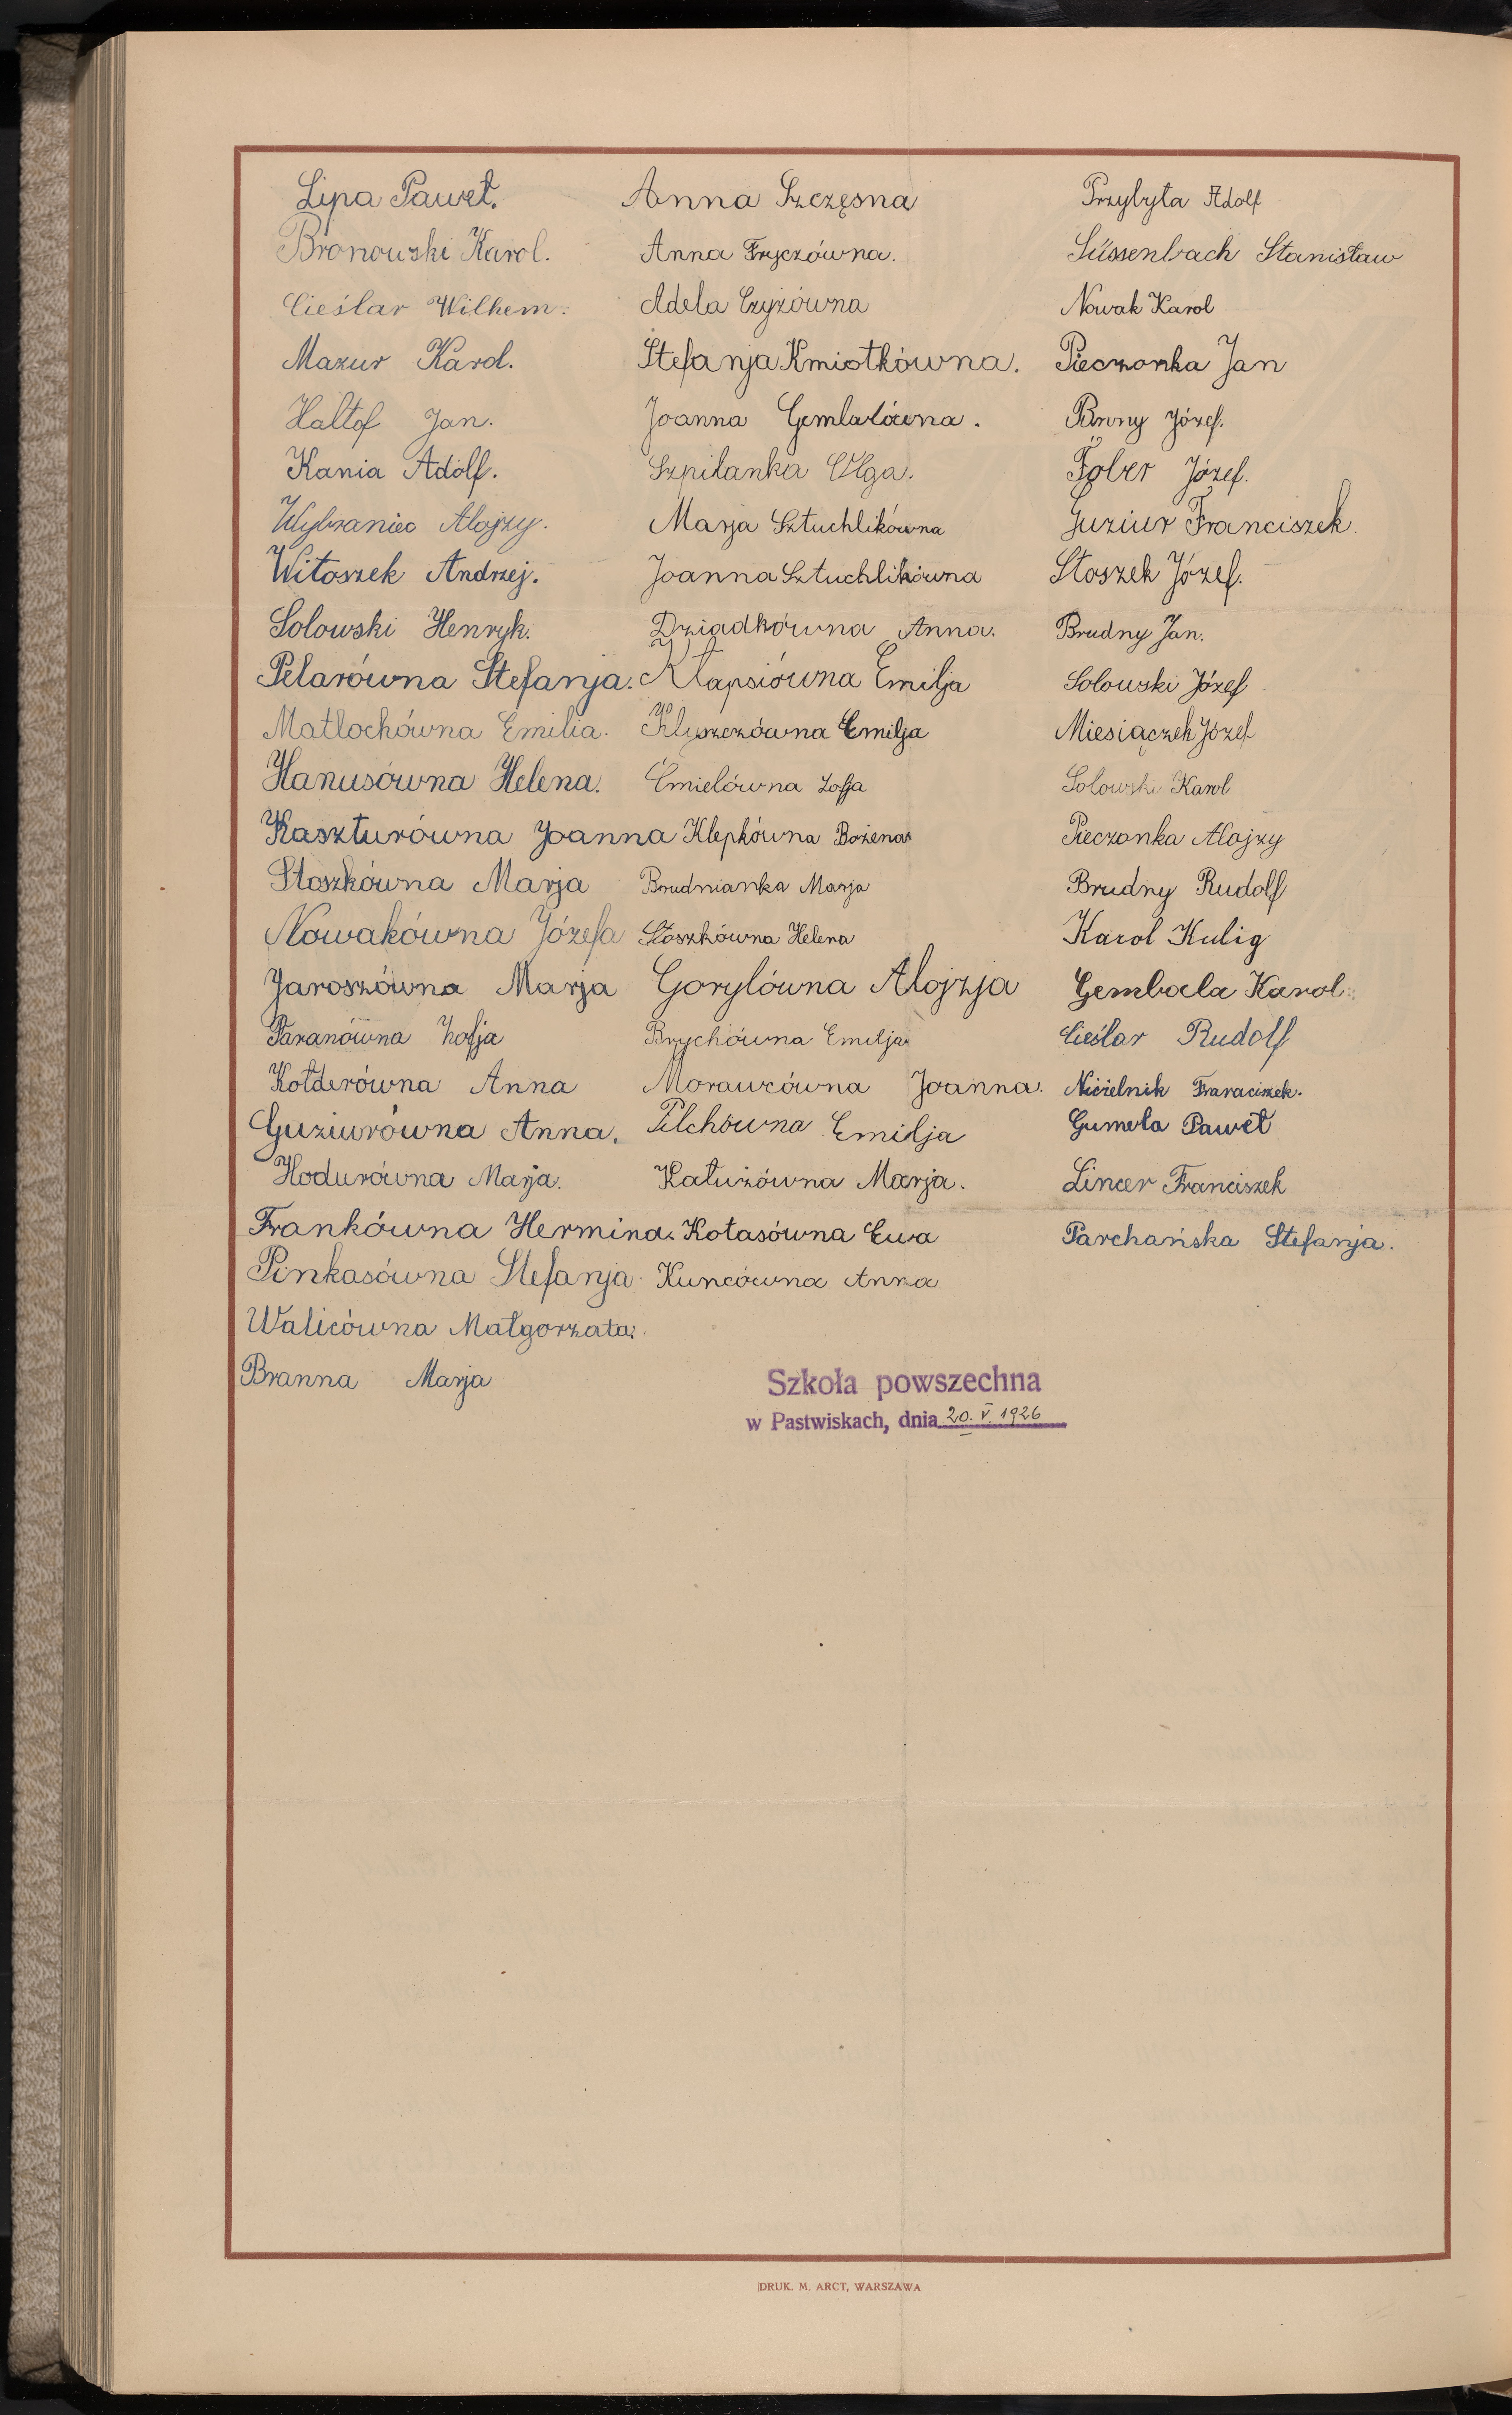 Lipa Paweł.
Bronowski Karol.
Cieślar Wilhem.
Mazur Karol.
Haltof Jan.
Kania Adolf.
Wybraniec Alojzy.
Witoszek Andrzej.
Solowski Henryk.
Pelarówna Stefanja.
Matlochówna Emilia.
Hanusówna Helena.
Kaszturówna Joanna
Stoszkówna Marja
Nowakówna Józefa
Jaroszówna Marja
Paranówna Zofja
Kołderówna Anna
Guziurówna Anna.
Hodurówna Marja.
Frankówna Hermina.
Pinkasówna Stefanja
Walicówna Małgorzata.
Branna Marja
Anna Szczęsna
Anna Fryczówna.
Adela Czyżówna
Stefanja Kmiotkówna.
Joanna Gembalówna.
Szpilanka Olga.
Marja Sztuchlikówna
Joanna Sztuchlikówna
Dziadkówna Anna.
Kłapsiówna Emilja
Kluszczówna Emilja
Ćmielówna Zofja
Klepkówna Bożena
Brudnianka Marja
Stoszkówna Helena
Gorylówna Alojzja
Brychówna Emilja
Morawcówna Joanna.
Pilchówna Emilja
Kałużówna Marja.
Kotasówna Ewa
Kuncówna Anna
Przybyła Adolf
Süssenbach Stanisław
Nowak Karol
Pieczonka Jan
Branny Józef.
Fober Józef.
Guziur Franciszek.
Stoszek Józef.
Brudny Jan.
Solowski Józef
Miesiączek Józef
Solowski Karol
Pieczonka Alojzy
Brudny Rudolf
Karol Kulig
Gembala Karol
Cieślar Rudolf
Nicielnik Franciszek.
Gumola Paweł
Lincer Franciszek
Parchańska Stefanja.
Szkoła powszechna
w Pastwiskach, dnia 20. V. 1926
DRUK. M. ARCT, WARSZAWA